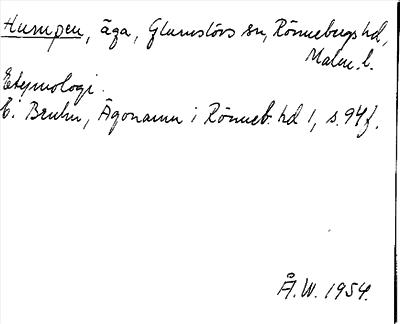 Humpen, äga, Glumslövs sn, Rönnebergs hd,
Malm. l.
Etymologi.
E. Bruhn, Ägonamn i Rönneb. hd 1, s. 94 f.
Å.W. 1954.